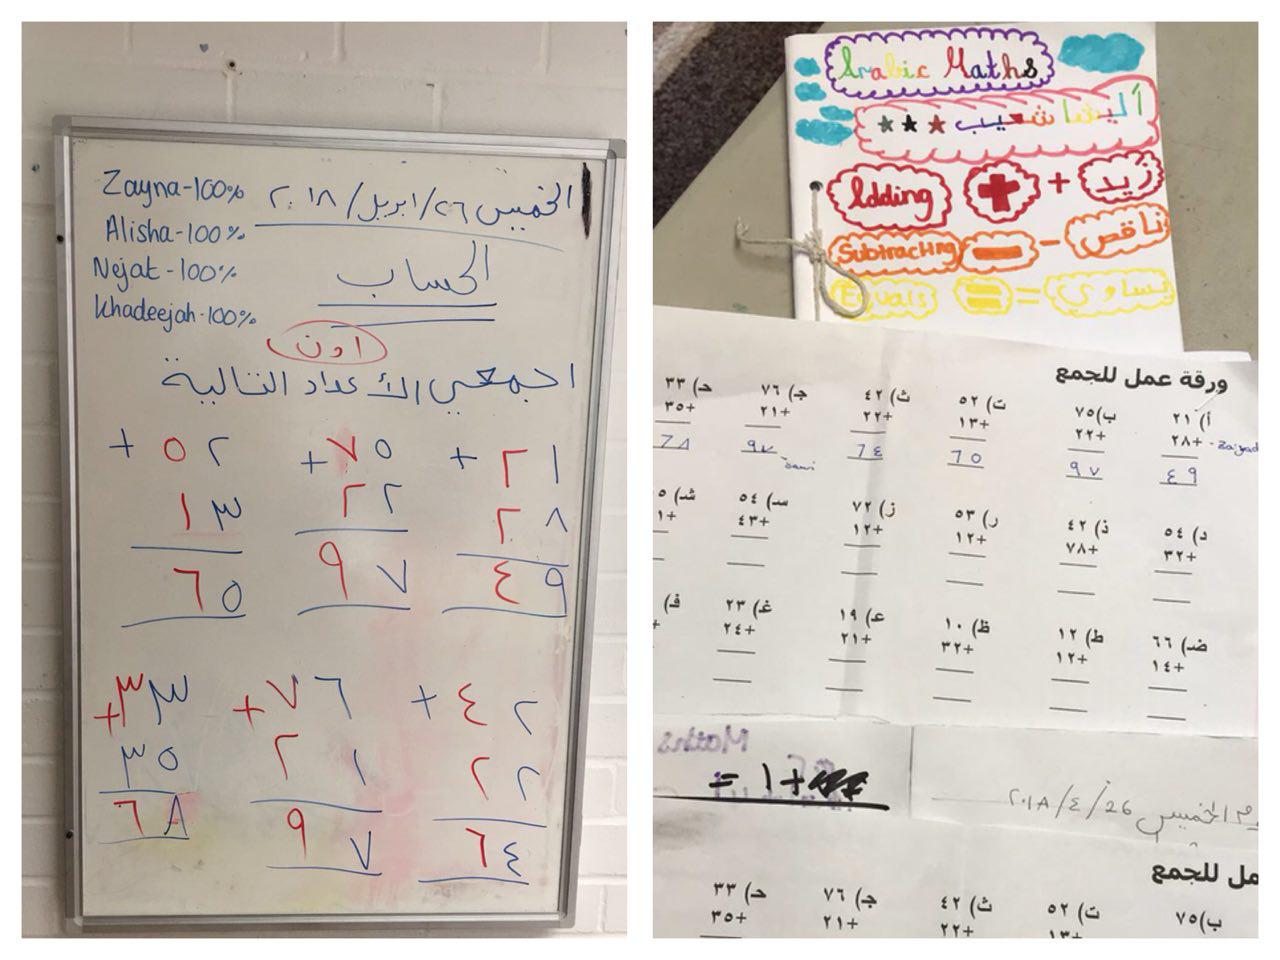 الخميس ٢٦/ابريل/٢٠١٨
Zayna-100%
Alisha-100%
Nejat-100%
Khadeejah-100%
الحساب
اجمعي الأعداد التالية
٢١ + ٧٥ + ٥٢ +
٢٨ ٢٢ ١٣
٤٩ ٩٧ ٦٥
٤٢ + ٧٦ + ٣٣ +
٢٢ ٢١ ٣٥
٦٤ ٩٧ ٦٨
Arabic Maths
أليشا شعيب
Adding + زيد
Subtracting - ناقص
Equals = يساوي
ورقة عمل للجمع
أ) ٢١ ب) ٧٥ ت) ٥٢ ث) ٤٢ جـ) ٧٦ حـ) ٣٣
+٢٨ +٢٢ +١٣ +٢٢ +٢١ +٣٥
٤٩ ٩٧ ٦٥ ٦٤ ٩٧ ٦٨
د) ٥٤ ذ) ٤٢ ر) ٥٣ ز) ٧٢ سـ) ٥٤ شـ)
+٣٢ +٧٨ +١٢ +١٢ +٤٣
ضـ) ٦٦ ط) ١٢ ظ) ١٠ عـ) ١٩ غـ) ٢٣ فـ)
+١٤ +١٢ +٣٢ +٢١ +٢٤
= ١+
الخميس 26/٤/٢٠١٨
مل للجمع
ب) ٧٥ ت) ٥٢ ث) ٤٢ جـ) ٧٦ حـ) ٣٣
+١٣ +٢٢ +٢١ +٣٥